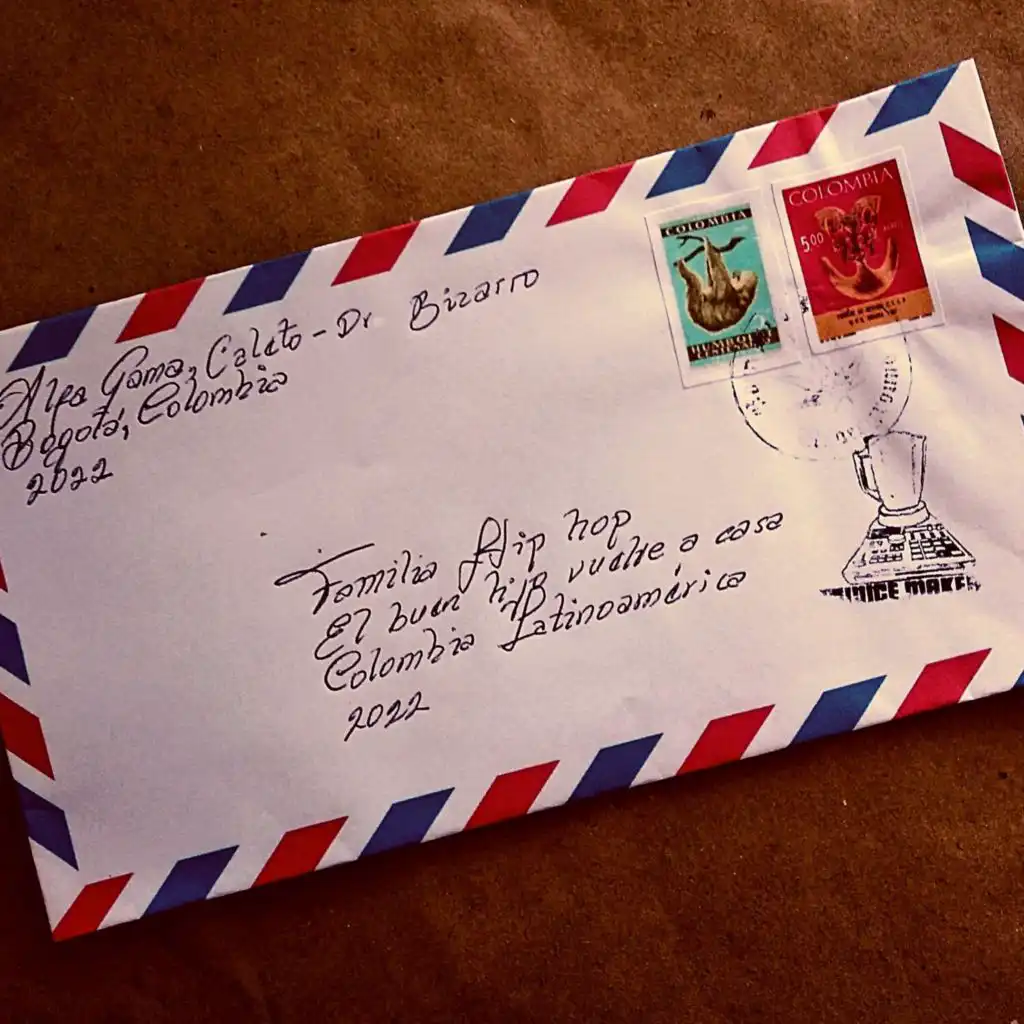 Alfa Gama, Caleto - Dr Bizarro
Bogotá, Colombia
2022
COLOMBIA
HUMBOLDT
COLOMBIA
5.00
Familia Hip hop
El buen hijo vuelve a casa
Colombia Latinoamérica
2022
JUICE MAKER